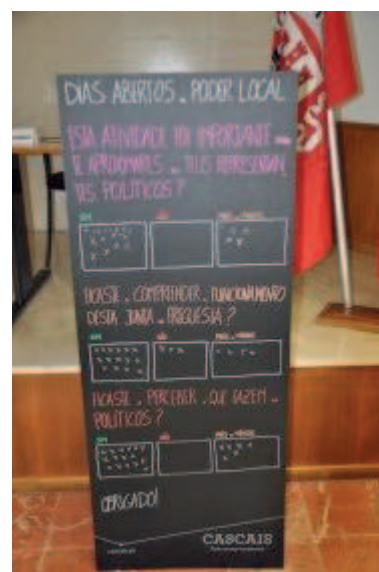 DIAS ABERTOS - PODER LOCAL
ESTA ATIVIDADE FOI IMPORTANTE
TE APROXIMARES TEUS REPRESENTAN
TES POLÍTICOS?
SIM NÃO MAIS OU MENOS
FICASTE COMPREENDER FUNCIONAMENTO
DESTA JUNTA FREGUESIA?
SIM NÃO MAIS OU MENOS
FICASTE PERCEBER QUE FAZEM
POLÍTICOS?
SIM NÃO MAIS OU MENOS
OBRIGADO!
CASCAIS